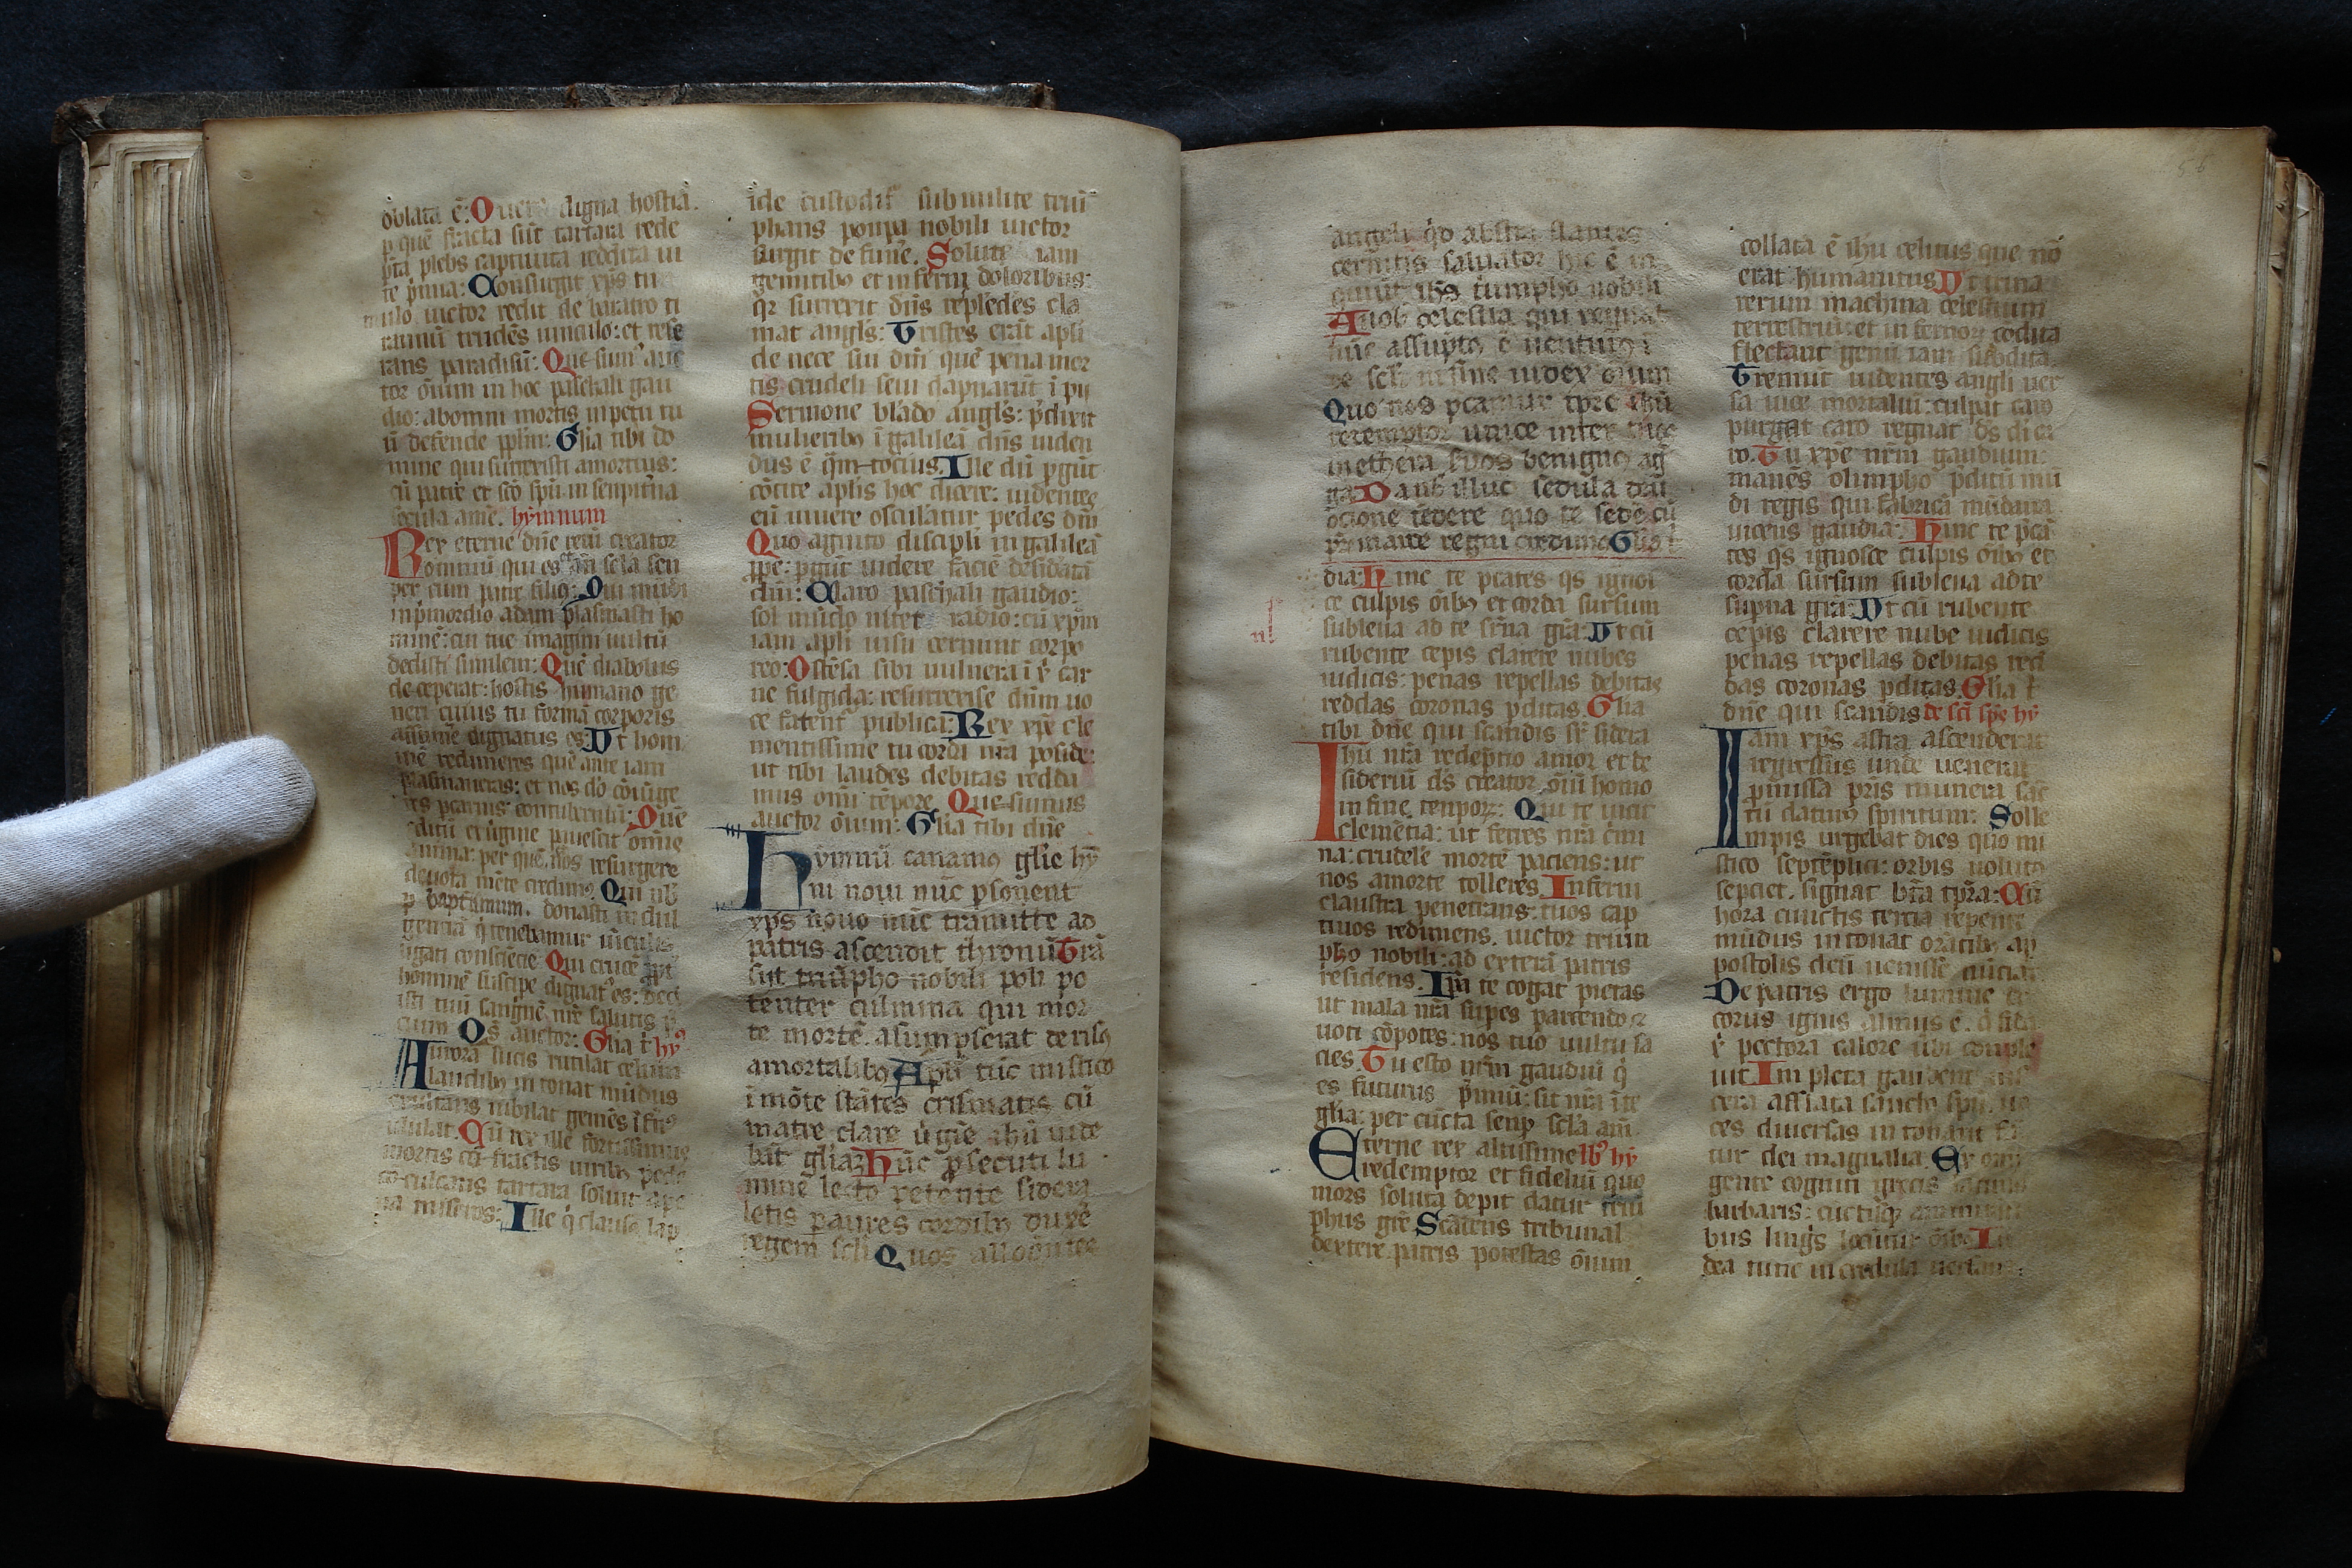 oblata ē. O uere digna hostia.
p quē fracta sūt tartara rede
pta plebs captiuata reddita ui
te pmia: Consurgit xps tu
mulo uictor redit de baratro ti
rannū trudēs uinculo: et rese
rans paradisū: Quesum auc
tor ōium in hoc paschali gau
dio: ab omni mortis inpetu tu
ū defende pplm: Glia tibi do
mine qui surrexisti a mortuis:
cū patre et sco spū in senpitna
secula amē. hymnum
Rex eterne dne rerū creator
omniū qui es an scla sen
per cum patre filiꝰ: Qui mūdi
inpmordio adam plasmasti ho
minē: cui tue imagini uultū
dedisti similem: Quē diabolus
deceperat: hostis humano ge
neri cuius tu formā corporis
assume dignatus es. Ut hom
inē redimeres quē ante iam
plasmaueras: et nos dō cōiūge
res
ditū et uigine
anima: per quē nos resurgere
deuota mēte credimꝰ. Qui nob
p baptismum. donasti indul
gentiā q tenebamur uīculis
ligati consciēcie Qui crucē ppt
hominē suscipe dignatꝰ es: dedi
sti tuū sanguē nre salutis p
cium Qs auctor: Glia t hyꝰ
Aurora lucis rutilat celum
laudibꝰ intonat mūdus
exultans iubilat gemēs īfnꝰ
ululat. Cū rex ille fortissimus
mortis cō fractis uiribꝰ pede
cō culcans tartara soluit a pe
na miseros: Ille q clausꝰ lap
ide custodit sub milite triū
phans ponpa nobili uictor
surgit de funē. Solutis iam
gemitibꝰ et inferni doloribus:
qr surrexit dns resplēdēs cla
mat anglꝰ: Tristes erāt apli
de nece sui dni quē pena mor
tis crudeli seui dapnarūt īpii
Sermone blādo anglꝰ: pdixit
mulieribꝰ ī galileā dns uiden
dus ē qm tocius. Ille dū pgūt
cōcite aplis hoc dicere: uidentes
eū uiuere osculātur pedes dni
Quo agnito discipli in galileā
ppe: pgūt uidere faciē desidatā
dni: Claro paschali gaudio:
sol mūdo nitet radio: cū xpm
iam apli uisu cernunt corpo
reo: Ostēsa sibi uulnera ī x car
ne fulgida: resurrexise dnm uo
ce fatent publica: Rex xpe cle
mentissime tu corda nra poside:
ut tibi laudes debitas redda
mus omi tēpore. Quesumus
auctor ōium. Glia tibi dne
Hymnū canamꝰ glie hy
mni noui nūc psonent
xps nouo nūc tramitte ad
patris ascendit thronū Trā
sit triūpho nobili poli po
tenter culmina qui mor
te mortē asumpserat derisꝰ
a mortalibꝰ Apli tūc mistico
ī mōte stātes crismatis cū
matre clare uigīe ihū uide
bāt gliaz Hūc psecuti lu
mine lecto petente sidera
letis patres cordibꝰ duxē
regem scli Quos alloqntes
angeli qd astra stantes
cernitis saluator hic ē in
quiūt ihs triumpho nobili
A uob celestia qui regnat
nūc assuptꝰ ē uenturꝰ ī
de scli in fine iudex oium
Quo nos pcamur tpre ihū
redemptor unice inter tuos
in ethera suos benignꝰ ag
ga Da nob illuc sedula deū
ocione tēdere quo te sedē cū
pr in arce regni credimꝰ Glia t
dia: Hinc te pcātes qs ignos
ce culpis oībꝰ et corda sursum
subleua ad te srna gra: Ut cū
rubente cepis clarere nubes
iudicis: penas repellas debitas
reddas coronas pditas. Glia
tibi dne qui scandis sr sidera
Ihū nra redeptio amor et de
sideriū ds creator oiū homo
in fine tenporz: Qui te uicit
clemētia: ut ferres nra cmi
na: crudelē mortē paciens: ut
nos a morte tolleres. Inferni
claustra penetrans: tuos cap
tiuos redimens. uictor triūn
pho nobili: ad exterā patris
residens. Ipa te cogat pietas
ut mala nra supes parcendo z
uoti cōpotes: nos tuo uultu sa
cies. Tu esto nrm gaudiū q
es futurus pmiū: sit nra ī te
glia: per cūcta senp scla am
Eterne rex altissime ibꝰ hy
redemptor et fideliū quo
mors soluta depit datur triū
phus gre Scādens tribunal
dextere patris potestas ōium
collata ē ihu celitus que nō
erat humanitus Ut trina
rerum machina celestium
terrestriū: et infernor codita
flectant genu iam subdita.
Tremūt uidentes angli uer
sa uice mortaliū: culpat caro
purgat caro regnat ds di ca
ro. Tu xpe nrm gaudium:
manēs olimpho pditū mū
di regis qui fabricā mūdana
uicens gaudia: Hinc te pcā
tes qs ignosce culpis oībꝰ et
corda sursum subleua ad te
supna gra: Ut cū rubente
cepis clarere nube iudicis
penas repellas debitas red
das coronas pditas. Glia t
dne qui scandis de sci spe hy
Iam xps astra ascenderat
regressus unde uenerat
pmissa pris munera scm
tū daturꝰ spiritum: Solle
mpis urgebat dies quo mi
stico septēplici: orbis uolutꝰ
septiet. signat bta tpra: Cū
hora cunctis tercia repente
mūdus intonat orātibꝰ ap
postolis deū uenisse nūciat
De patris ergo lumine de
corus ignis almus ē. q fida
x pectora calore ubi conple
uit Impleta gaudent uis
cera afflata sancto spu. uo
ces diuersas intonant fā
tur dei magnalia. Ex omi
gente cogniti grecis latinis
barbaris: cūctisqȝ
bus linguis locuntur oibꝰ Iu
dea tunc incredula uesana